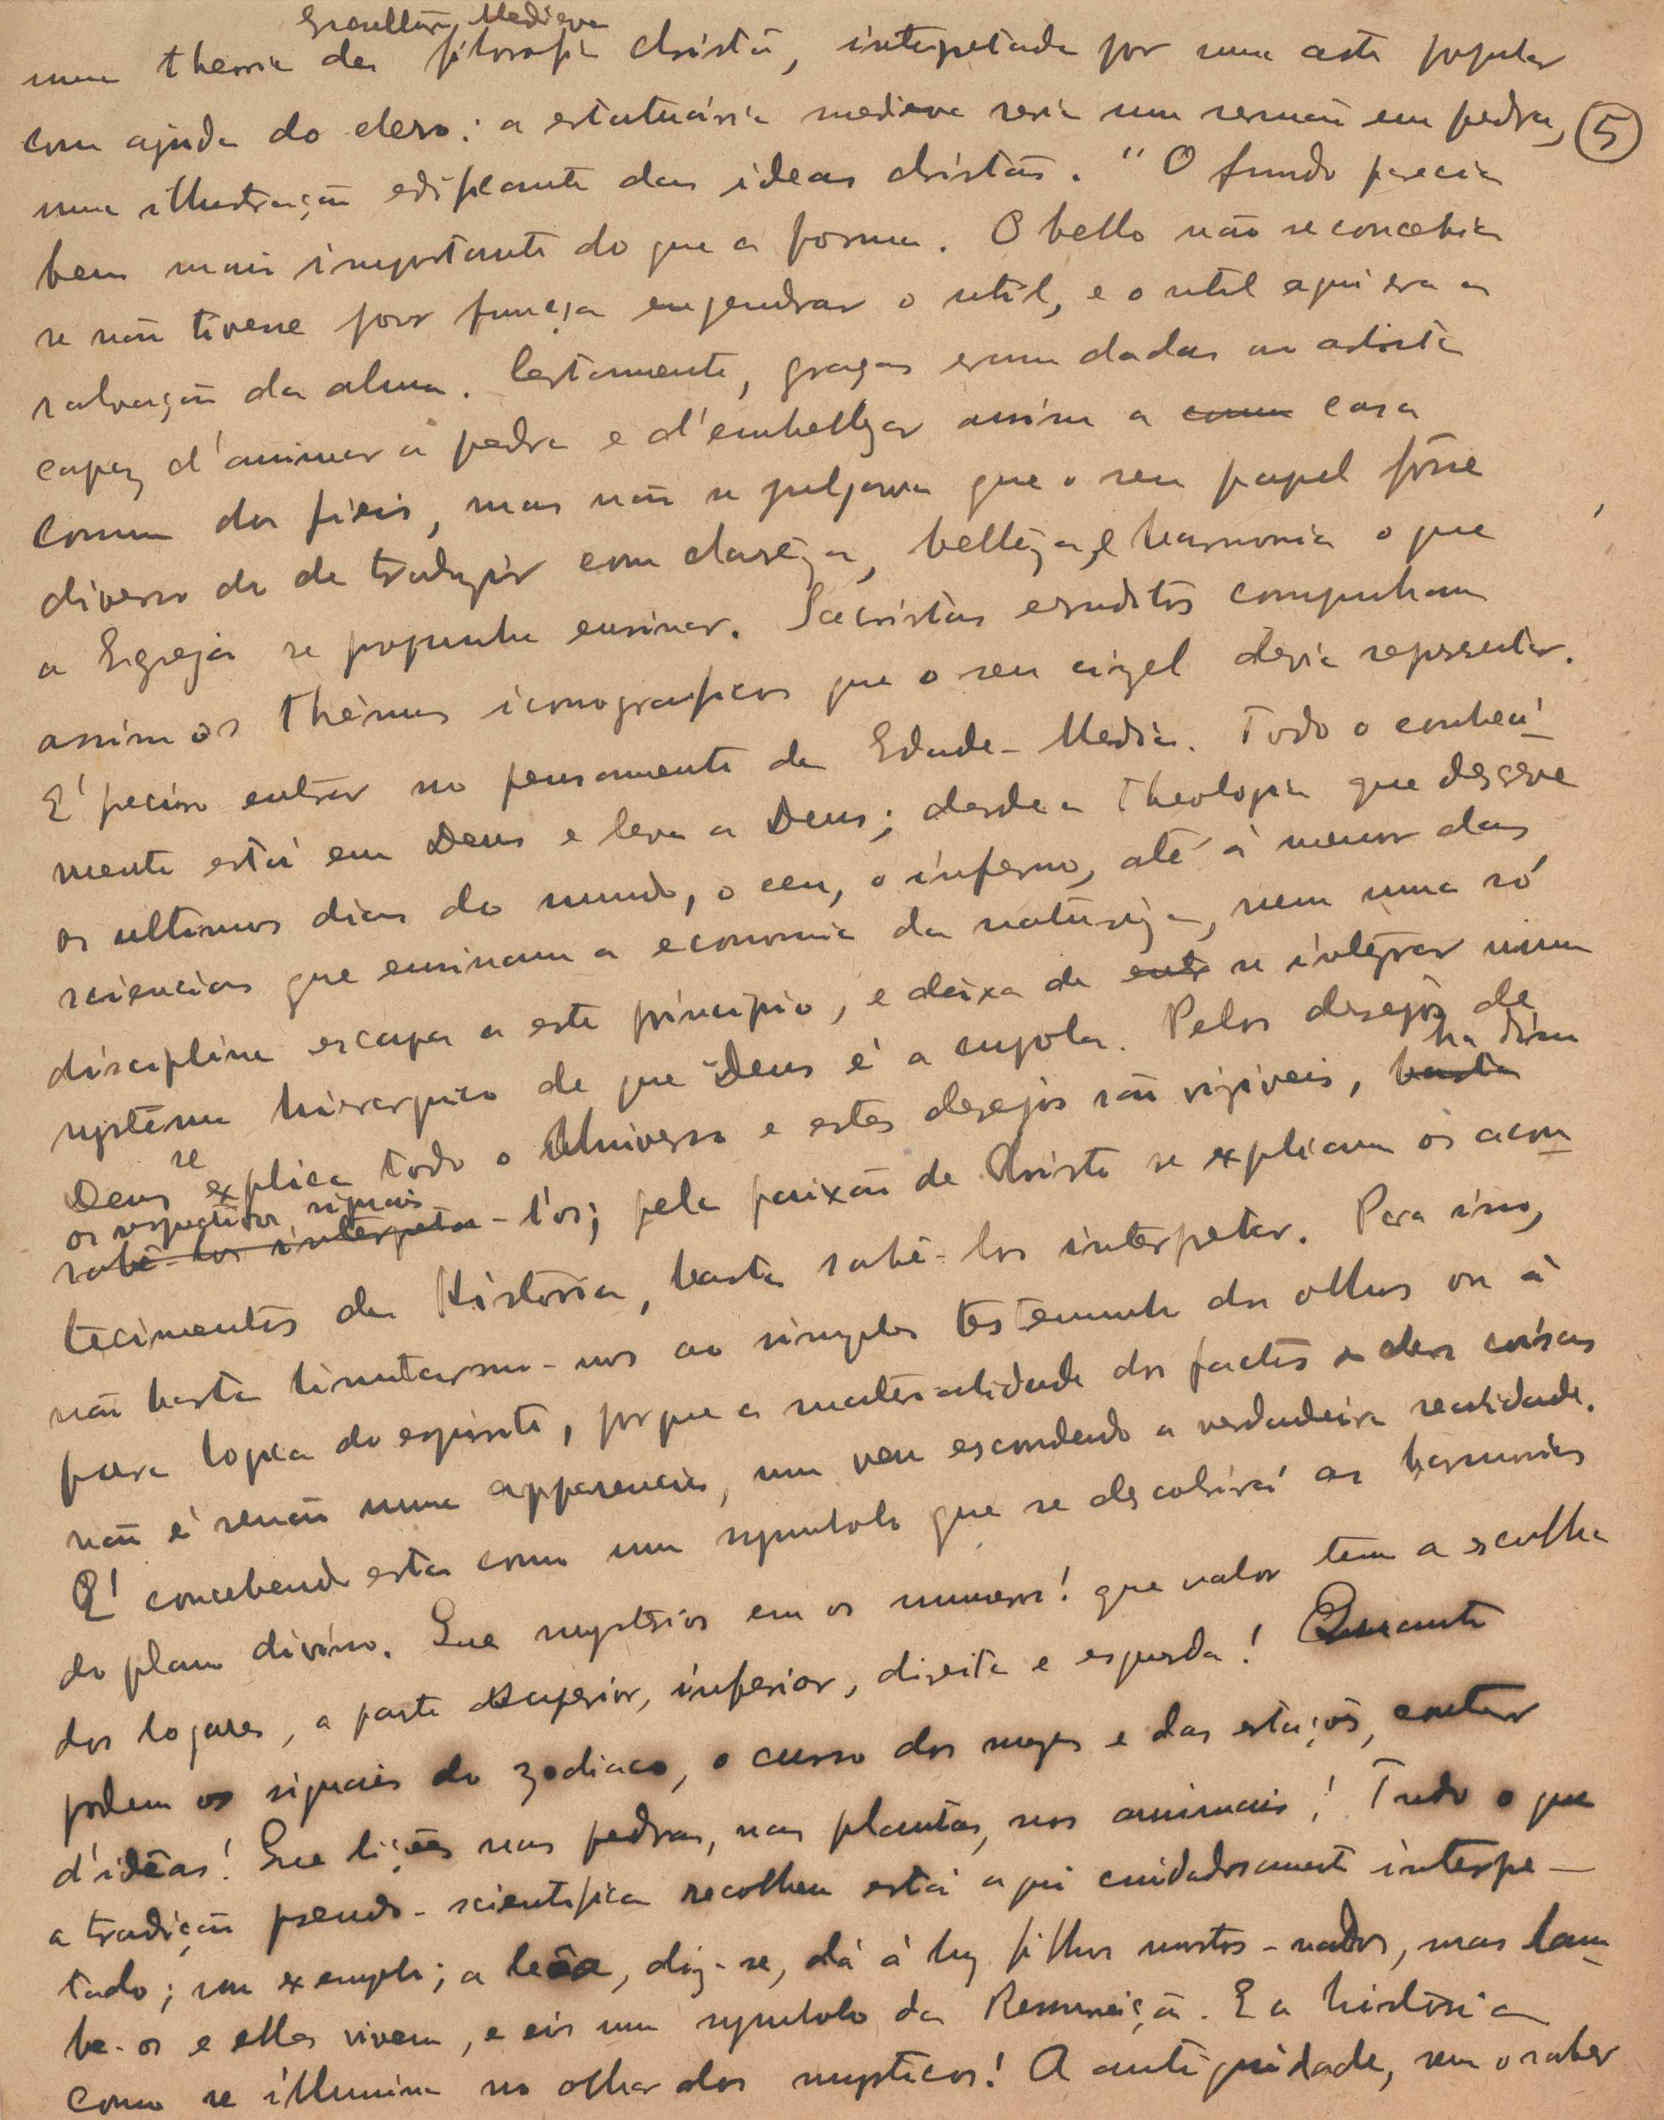 Esculltura Medieva
uma theoria da filosofia christã, interpetada por uma arte popular
com ajuda do clero: a estatuária medieva seria um sermão em pedra, 5
uma illustração edificante das ideas christãs. "O fundo parecia
bem mais importante do que a forma. O bello não se concebia
se não tivesse por funcça engendrar o util, e o util aqui era a
salvação da alma. Certamente, graças eram dadas ao artista
capaz d'animar a pedra e d'embellezar assim a casa
comum dos fieis, mas não se julgava que o seu papel fôsse
diverso do de traduzir com clareza, belleza, e harmonia o que
a Egreja se propunha ensinar. Sacristas eruditos compunham
assim os thêmas iconograficos que o seu cizel devia representar.
E' preciso entrar no pensamento da Edade-Media. Todo o conheci-
mento está em Deus e leva a Deus; desde a theologia que descreve
os ultimos dias do mundo, o ceu, o inferno, até à menor das
sciencias que ensinam a economia da natureza, nem uma só
disciplina escapa a este principio, e deixa de se integrar num
systêma hierarquico de que Deus é a cupola. Pelos desejos de
Deus se explica todo o Universo e estes desejos são visiveis, basta
os respectivos signaes
sabê-los interpetar-l'os; pela paixão de Christo se explicam os acon-
tecimentos da História, basta sabê-los interpetar. Para isso,
não basta limitarmo-nos ao simples testemunho dos olhos ou à
pura logica do espirito, porque a materialidade dos factos e das coisas
não é senão uma apparencia, um veu escondendo a verdadeira realidade.
E' concebendo esta como um symbolo que se descobrirá as harmonias
do plano divino. Que mystérios em os numeros! que valor tem a escolha
dos logares, a parte superior, inferior, direita e esquerda! Quanto
podem os signaes do zodiaco, o curso dos mezes e das estações, conter
d'idêas! Que lições nas pedras, nas plantas, nos animais! Tudo o que
a tradição pseudo-scientifica recolheu está aqui cuidadosamente interpe-
tado; um exemplo; a leôa, diz-se, dá à luz filhos mortos-nados, mas lam-
be-os e elles vivem, e eis um symbolo da Resurreição. E a história
como se illumina no olhar dos mysticos! A antiguidade, sem o saber